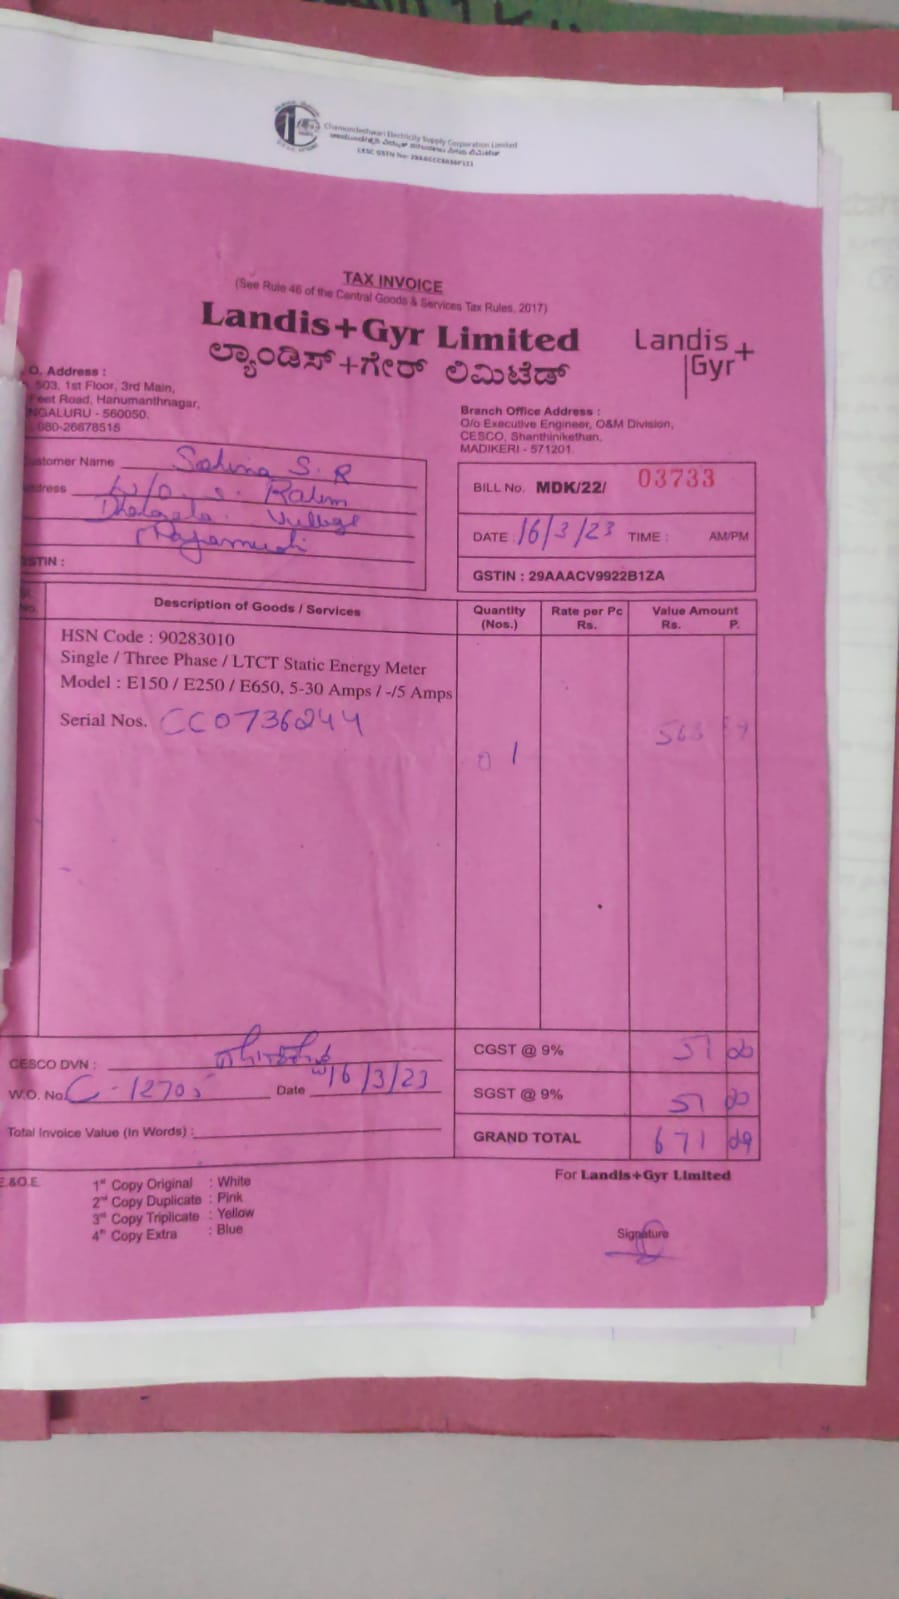 Chamundeshwari Electricity Supply Corporation Limited
TAX INVOICE
(See Rule 46 of the Central Goods & Services Tax Rules, 2017)
Landis+Gyr Limited
ಲ್ಯಾಂಡಿಸ್+ಗೇರ್ ಲಿಮಿಟೆಡ್
Landis
Gyr+
O. Address :
503, 1st Floor, 3rd Main,
Feet Road, Hanumanthnagar,
NGALURU - 560050.
080-26678515
Branch Office Address :
O/o Executive Engineer, O&M Division,
CESCO, Shanthinikethan,
MADIKERI - 571201
ustomer Name S. R
ddress W/o. S. Rahim
Village
STIN :
BILL No. MDK/22/ 03733
DATE : 16/3/23 TIME : AM/PM
GSTIN : 29AAACV9922B1ZA
No. Description of Goods / Services Quantity (Nos.) Rate per Pc Rs. Value Amount Rs. P.
HSN Code : 90283010
Single / Three Phase / LTCT Static Energy Meter
Model : E150 / E250 / E650, 5-30 Amps / -/5 Amps
Serial Nos. CC0736244
01 568
CESCO DVN :
W.O. No. C-12705 Date 16/3/23
Total Invoice Value (In Words) :
CGST @ 9% 51
SGST @ 9% 51
GRAND TOTAL 671
E.&O.E.
1st Copy Original : White
2nd Copy Duplicate : Pink
3rd Copy Triplicate : Yellow
4th Copy Extra : Blue
For Landis+Gyr Limited
Signature